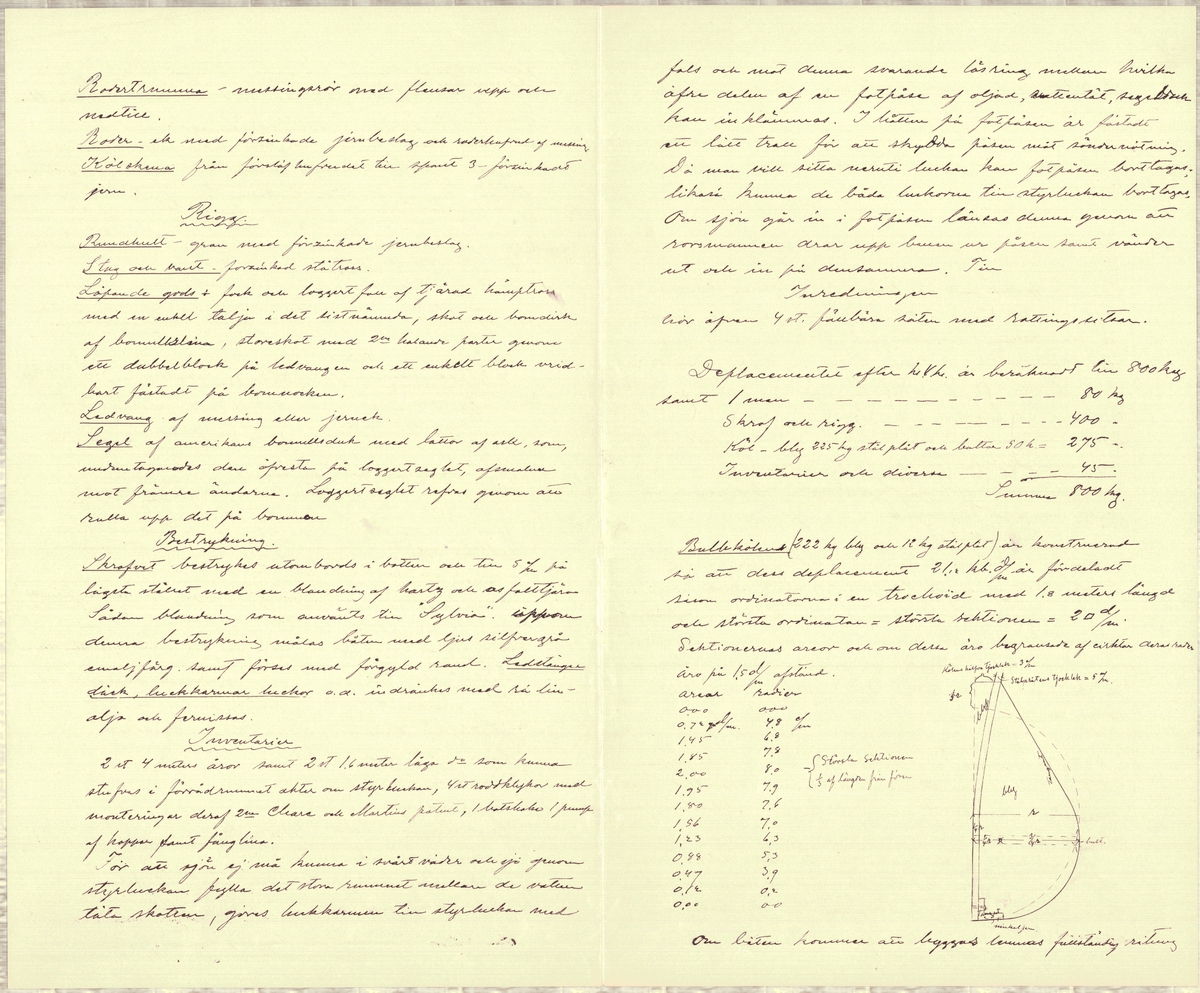 Rodertrumma - messingsrör med flensar upp och
nedtill.
Roder - ek med förzinkade jernbeslag och
Kölskena från till spant 3 - förzinkadt
jern.
Rigg.
Rundhult - gran med förzinkade jernbeslag.
Stag och vant - förzinkad ståtross.
Löpande gods: fock och loggertfall af tjärad hamptross
med en enkel talja i det sistnämnda, skot och bomdirk
af bomullslina, storskot med 2ne halande parter genom
ett dubbelblock på ledvangen och ett enkelt block vrid-
bart fästadt på bomnocken.
Ledvang af messing eller jernek.
Segel af amerikans bomullsduk med lattor af ask, som,
undantagandes den öfversta på loggertseglet, afsmalna
mot främre ändarna. Loggertseglet refvas genom att
rulla upp det på bommen
Bestrykning.
Skrofvet bestrykes utombords i botten och till 5 på
lägsta stället med en blandning af hartz och asfalttjära
Sådan blandning som använts till "Sylvia".
denna bestrykning målas båten med ljus silfvergrå
emaljfärg samt förses med förgyld rand.
däck, luckkarmar luckor o.d. indränkes med rå lin-
olja och fernissas.
Inventarier
2 st 4 meters åror samt 2 st 1,6 meter låga do som kunna
stufvas i förrådrummet akter om styrluckan, 4 st roddklykor med
monteringar deraf 2ne Clare och Martins patent, 1 båtshake 1 pump
af koppar samt fånglina.
För att sjön ej må kunna i svårt väder och sjö genom
styrluckan fylla det stora rummet mellan de vatten
täta skotten, göres luckkarmen till styrluckan med
fals och mot denna svarande låsring mellan hvilka
öfre delen af en fotpåse af oljad, vattentät, segelduk
kan inklämmas. I botten på fotpåsen är fästadt
ett lätt trall för att skydda påsen mot söndernötning.
Då man vill sitta neruti luckan kan fotpåsen borttagas,
likaså kunna de båda luckorna till styrluckan borttagas.
Om sjön går in i fotpåsen länsas denna genom att
rorsmannen drar upp benen ur påsen samt vänder
ut och in på densamma. Till
Inredningen
hör äfven 4 st. fällbära säten med rottingssitsar.
Deplacementet efter är beräknadt till 800 kg
samt 1 man - - - - 80 kg
Skrof och rigg. - - - - 400 -
Köl - bly 225 kg stålplåt och bultar 50 k = 275 -
Inventarier och diverse - - - 45 -
Summa 800 kg.
Bulbkölens (222 kg bly och 12 kg stålplåt) är konstruerad
så att dess deplacement 21,2 kb. d/m är fördeladt
såsom ordinatorna i en trochoid med 1,8 meters längd
och största ordinatan = största sektionen = 2 □ d/m.
Sektionernas areor och om dessa äro begränsade af cirklar deras radier
äro på 1,5 d/m afstånd.
areor radier
000 000
0,72 □ d/m. 4,8 c/m
1,45 6,8
1,85 7,8
2,00 8,0 { Största sektionen
1/3 af längden från fören
1,95 7,9
1,80 7,6
1,56 7,0
1,23 6,3
0,88 5,3
0,47 3,9
0,12 0,2
0,00 00
Stålplåtens tjocklek = 5 m/m.
bly
r
bult.
vinkeljern
Om båten kommer att byggas lemnas fullständig ritning